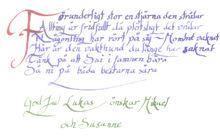 Förunderligt stor en stjärna den strålar
Allting är fridfullt då plötsligt det vrålar
Någonting har rört på sig - Hombre saknat
Här är den vakthund du länge har saknat
Tänk på att Soi i famnen bära
Så ni på båda bestarna sära
God Jul Lukas önskar Mikael
och Susanne